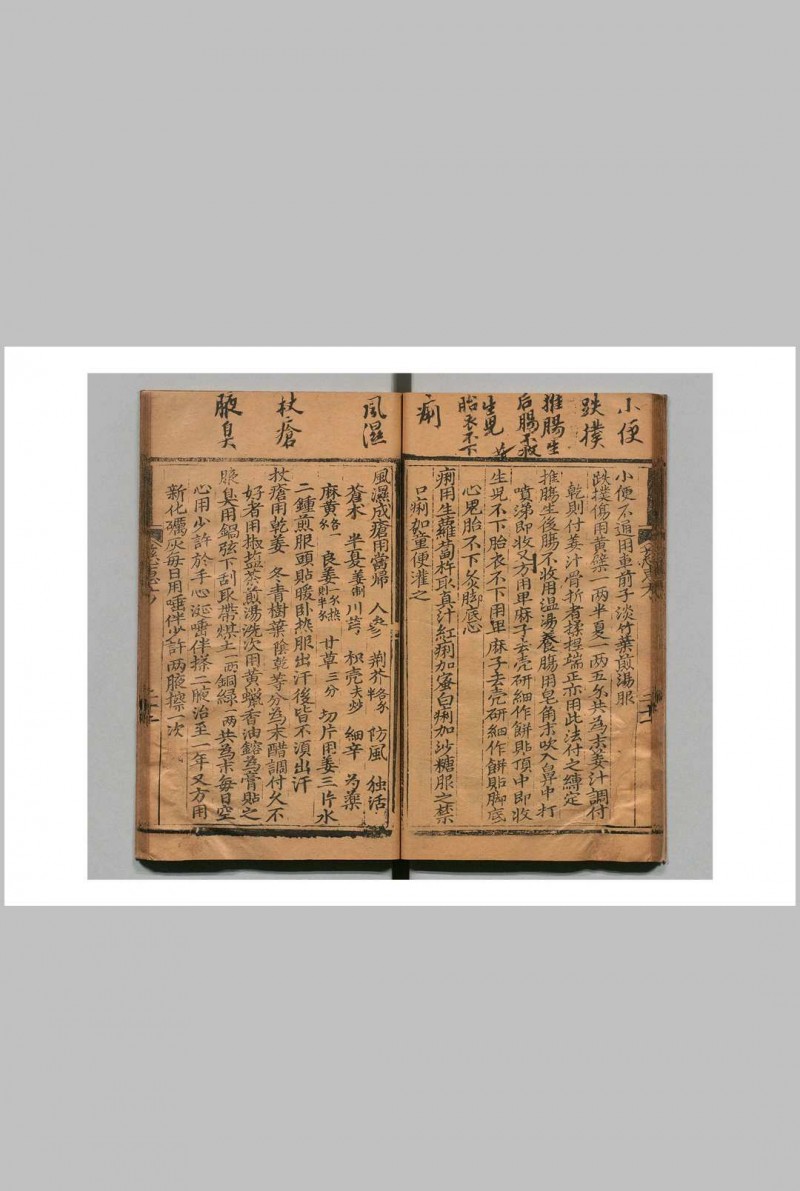 小便
跌撲
推腸生
后腸不收
生児
胎衣不下
痢
小便不通用車前子淡竹葉煎湯服
跌撲傷用黃蘗一兩半夏一兩五分共為末姜汁調付
乾則付姜汁骨折者揉捏端正亦用此法付之縛定
推腸生後腸不收用温湯養腸用皂角末吹入鼻中打
噴涕即收又方用萆麻子去壳研細作餅貼頂中即收
生児不下胎衣不下用萆麻子去壳研細作餅貼脚底
心児胎不下灸脚底心
痢用生蘿蔔杵取真汁紅痢加蜜白痢加沙糖服之禁
口痢加童便灌之
風濕
杖瘡
腋臭
風濕成瘡用當歸 人參 荆芥各分半 防風 独活
蒼朮 半夏姜制 川芎 枳壳夫炒 細辛 芍藥
麻黄各一分 良姜一分热則半分 甘草三分 切片用姜三片水
二鍾煎服頭貼暖卧热服出汗後皆不湏出汗
杖瘡用乾姜 冬青樹葉陰乾等分為末醋調付久不
好者用椒盐茶煎湯洗次用黄蠟香油鎔為膏貼之
腋臭用鍋弦下刮取帶煤土一兩銅緑一兩共為末每日空
心用少許於手心涎唾伴搽二腋治至一年又方用
新化礪灰每日用唾伴少許两腋搽一次